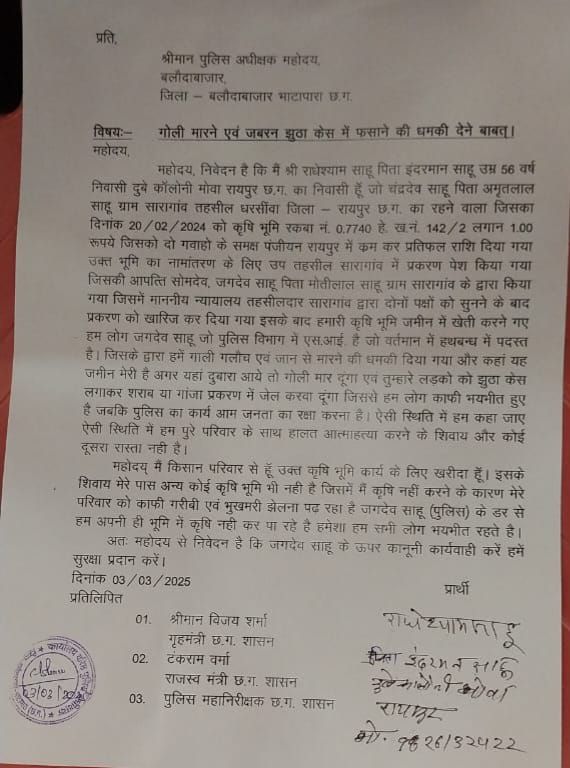 प्रति,
श्रीमान पुलिस अधीक्षक महोदय,
बलौदाबाजार,
जिला – बलौदाबाजार भाटापारा छ.ग.
विषयः– गोली मारने एवं जबरन झुठा केस में फसाने की धमकी देने बाबत्।
महोदय,
महोदय, निवेदन है कि मैं श्री राधेश्याम साहू पिता इंदरमान साहू उम्र 56 वर्ष
निवासी दुबे कॉलोनी मोवा रायपुर छ.ग. का निवासी हूँ जो चंद्रदेव साहू पिता अमृतलाल
साहू ग्राम सारागांव तहसील धरसींवा जिला – रायपुर छ.ग. का रहने वाला जिसका
दिनांक 20/02/2024 को कृषि भूमि रकबा नं. 0.7740 हे. ख.नं. 142/2 लगान 1.00
रूपये जिसको दो गवाहो के समक्ष पंजीयन रायपुर में कम कर प्रतिफल राशि दिया गया
उक्त भूमि का नामांतरण के लिए उप तहसील सारागांव में प्रकरण पेश किया गया
जिसकी आपत्ति सोमदेव, जगदेव साहू पिता मोतीलाल साहू ग्राम सारागांव के द्वारा किया
गया जिसमें माननीय न्यायालय तहसीलदार सारागांव द्वारा दोनों पक्षों को सुनने के बाद
प्रकरण को खारिज कर दिया गया इसके बाद हमारी कृषि भूमि जमीन में खेती करने गए
हम लोग जगदेव साहू जो पुलिस विभाग में एस.आई. है जो वर्तमान में हथबन्ध में पदस्त
है। जिसके द्वारा हमें गाली गलौच एवं जान से मारने की धमकी दिया गया और कहां यह
जमीन मेरी है अगर यहां दुबारा आये तो गोली मार दूंगा एवं तुम्हारे लड़को को झुठा केस
लगाकर शराब या गांजा प्रकरण में जेल करवा दूंगा जिससे हम लोग काफी भयभीत हुए
है जबकि पुलिस का कार्य आम जनता का रक्षा करना है। ऐसी स्थिति में हम कहा जाए
ऐसी स्थिति में हम पुरे परिवार के साथ हालत आत्माहत्या करने के शिवाय और कोई
दूसरा रास्ता नही है।
महोदय् मैं किसान परिवार से हूँ उक्त कृषि भूमि कार्य के लिए खरीदा हूँ। इसके
शिवाय मेरे पास अन्य कोई कृषि भूमि भी नही है जिसमें मैं कृषि नहीं करने के कारण मेरे
परिवार को काफी गरीबी एवं भुखमरी झेलना पढ रहा है जगदेव साहू (पुलिस) के डर से
हम अपनी ही भूमि में कृषि नही कर पा रहे है हमेशा हम सभी लोग भयभीत रहते है।
अतः महोदय से निवेदन है कि जगदेव साहू के ऊपर कानूनी कार्यवाही करें हमें
सुरक्षा प्रदान करें।
दिनांक 03/03/2025
प्रार्थी
प्रतिलिपित
01. श्रीमान विजय शर्मा
गृहमंत्री छ.ग. शासन
02. टंकराम वर्मा
राजस्व मंत्री छ.ग. शासन
03. पुलिस महानिरीक्षक छ.ग. शासन
राधेश्याम साहू
पिता इंदरमन साहू
दुबे कालोनी मोवा
रायपुर
मो.